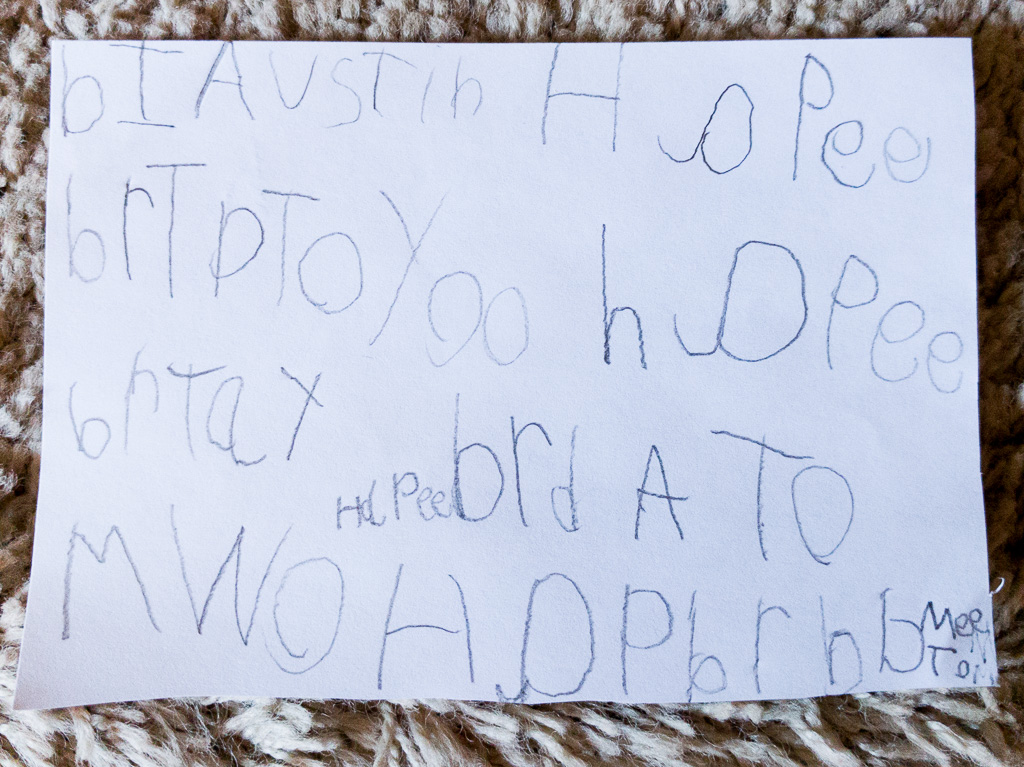 bI AUSTin H OPee
brTpToYoo h OPee
brTaY HaPee brd A TO
MWO H OP b r h b Mee To